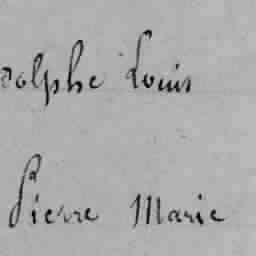 dolphe Louis
Pierre Marie